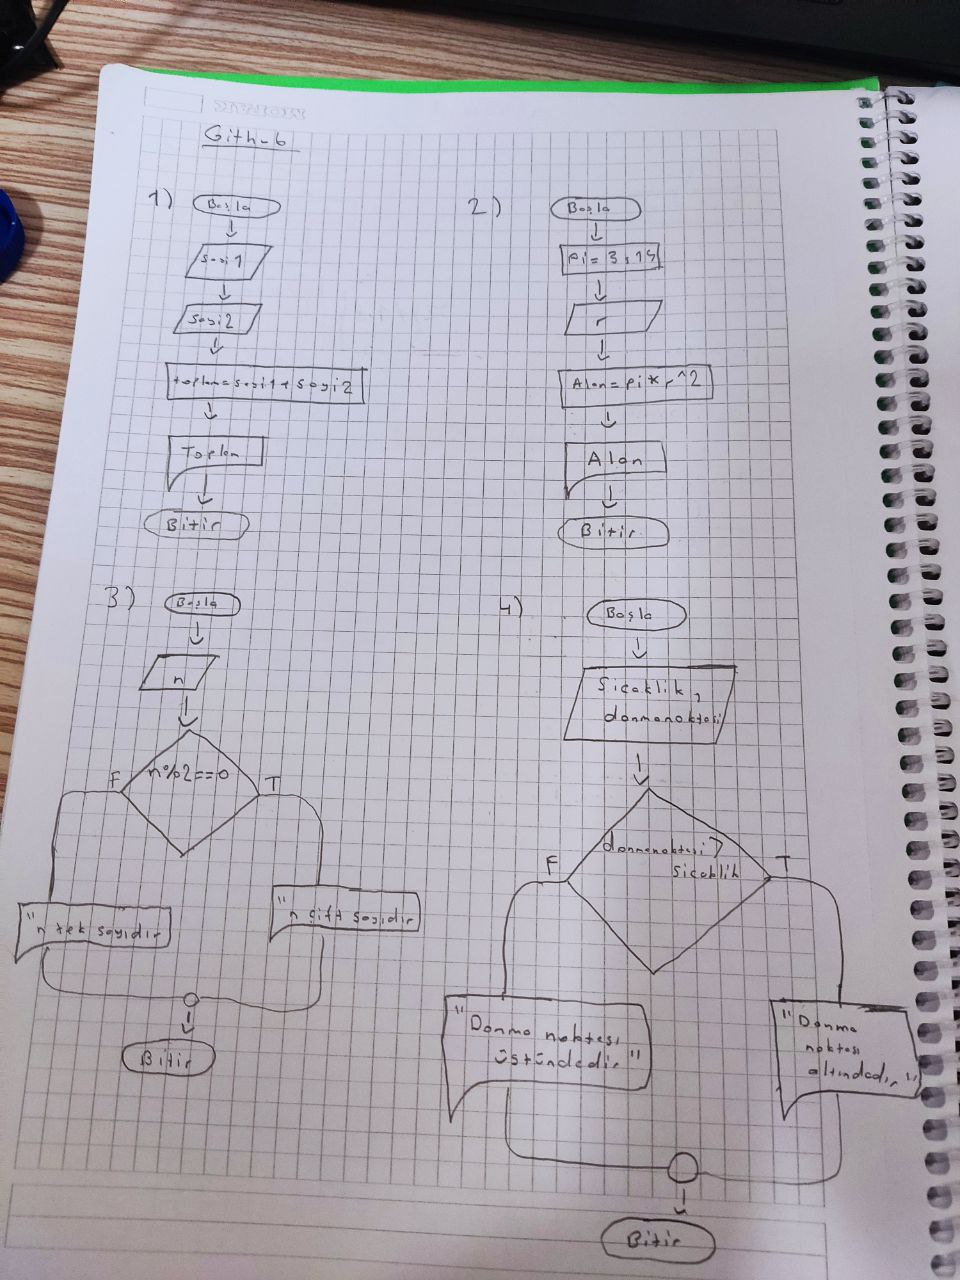 Github
1)
Başla
sayi1
sayi2
toplam=sayi1+sayi2
Toplam
Bitir
2)
Başla
Pi=3,14
r
Alan=pi*r^2
Alan
Bitir
3)
Başla
n
n%2==0
F
T
"n tek sayıdır
"n çift sayıdır
Bitir
4)
Başla
Sicaklik,
donmanoktasi
donmanoktasi>
sicaklik
F
T
"Donma noktası
üstündedir"
"Donma
noktası
altındadır"
Bitir